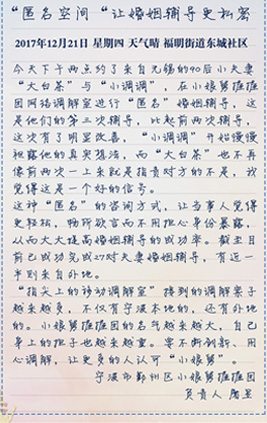 “匿名空间“让婚姻辅导更私密
2017年12月21日 星期四 天气晴 福明街道东城社区
今天下午两点约了来自无锡的90后小夫妻
“大白茶”与“小调调”，在小娘舅推推
团网络调解室进行“匿名”婚姻辅导，这
是他们的第三次辅导，比起前两次辅导，
这次有了明显改善，“小调调”开始慢慢
袒露他的真实想法，而“大白茶”也不再
像前两次一上来就是指责对方的不是，我
觉得这是一个好的信号。
这种“匿名”的咨询方式，让当事人觉得
更轻松，畅所欲言而不用担心身份暴露，
从而大大提高婚姻辅导的成功率。截至目
前已成功完成27对夫妻婚姻辅导，有近一
半则来自外地。
“指尖上的移动调解室”接到的调解案子
越来越多，不仅有宁波本地的，还有外地
的。小娘舅推推团的名气越来越大，自己
身上的担子也越来越重。要不断创新、用
心调解，让更多的人认可“小娘舅”。
宁波市鄞州区小娘舅推推团
负责人